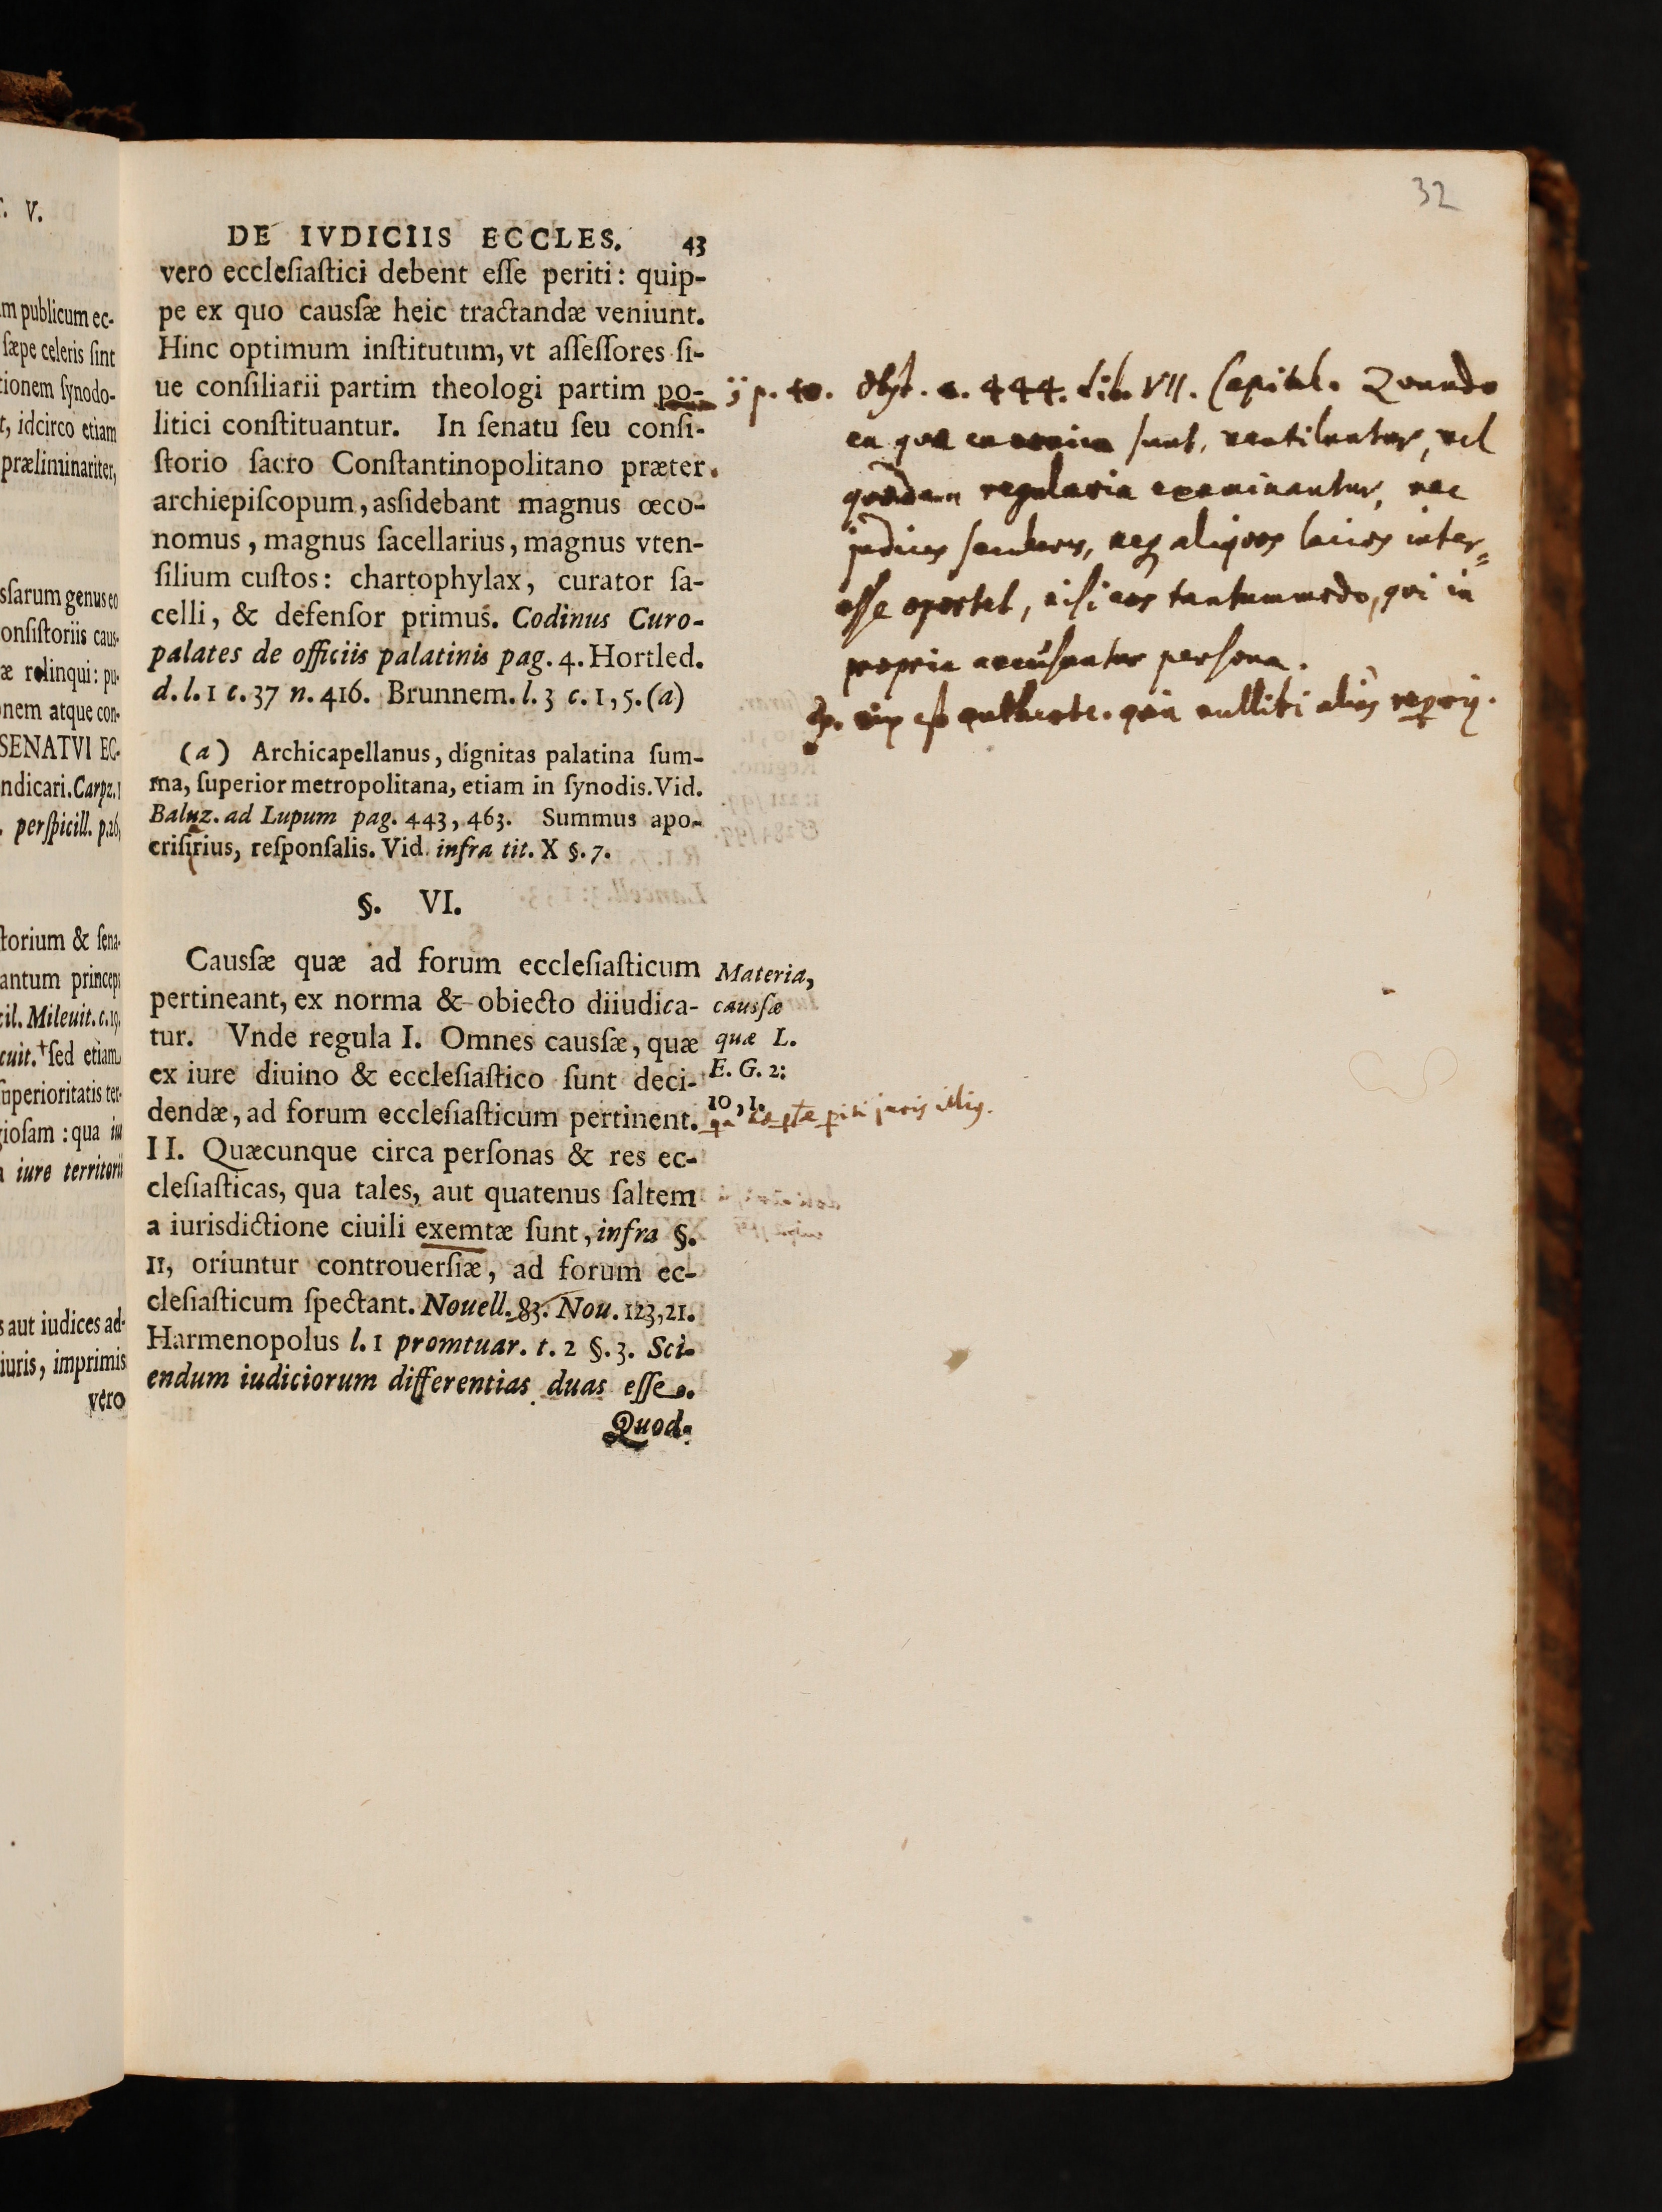 32
DE IVDICIIS ECCLES. 43
vero eccleſiaſtici debent eſſe periti: quip-
pe ex quo cauſſæ heic tractandæ veniunt.
Hinc optimum inſtitutum, vt aſſeſſores ſi-
ue conſiliarii partim theologi partim po-
litici conſtituantur. In ſenatu ſeu conſi-
ſtorio ſacro Conſtantinopolitano præter
archiepiſcopum, asſidebant magnus œco-
nomus, magnus ſacellarius, magnus vten-
ſilium cuſtos: chartophylax, curator ſa-
celli, & defenſor primus. Codinus Curo-
palates de officiis palatinis pag. 4. Hortled.
d. l. 1 c. 37 n. 416. Brunnem. l. 3 c. 1, 5. (a)
(a) Archicapellanus, dignitas palatina ſum-
ma, ſuperior metropolitana, etiam in ſynodis. Vid.
Baluz. ad Lupum pag. 443, 463. Summus apo-
criſirius, reſponſalis. Vid. infra tit. X §. 7.
§. VI.
Cauſſæ quæ ad forum eccleſiaſticum
pertineant, ex norma & obiecto diiudica-
tur. Vnde regula I. Omnes cauſſæ, quæ
ex iure diuino & eccleſiaſtico ſunt deci-
dendæ, ad forum eccleſiaſticum pertinent.
II. Quæcunque circa perſonas & res ec-
cleſiaſticas, qua tales, aut quatenus ſaltem
a iurisdictione ciuili exemtæ ſunt, infra §.
11, oriuntur controuerſiæ, ad forum ec-
cleſiaſticum ſpectant. Nouell. 83. Nou. 123, 21.
Harmenopolus l. 1 promtuar. t. 2 §. 3. Sci-
endum iudiciorum differentias duas eſſe.
Quod
Materia,
cauſſæ
quæ L.
E. G. 2:
10, 1.
juris illig.
444. Lib. VII. Capitul. Quando
ea quæ canonica sunt, ventilantur, vel
quædam regularia examinantur, nec
judices seculares, neq aliquos laicos inter=
esse oportet, nisi eos tantummodo, qui in
propria accusantur persona.
est authent. quia nullibi alias
. V.
m publicum ec-
ſæpe celeris ſint
tionem ſynodo-
t, idcirco etiam
præliminariter,
sſarum genus eo
onſiſtoriis cauſ-
æ relinqui: pu-
nem atque con-
SENATVI EC-
ndicari. Carpz. 1
. perſpicill. p. 26,
torium & ſena-
antum princeps
cil. Mileuit. c. 19.
cuit. † ſed etiam
uperioritatis ter-
gioſam: qua
iure territorii
s aut iudices ad-
iuris, imprimis
vero